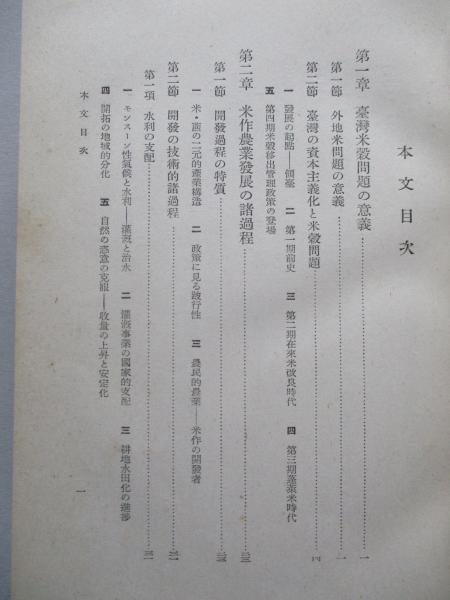 本文目次
第一章 臺灣米穀問題の意義………一
第一節 外地米問題の意義………一
第二節 臺灣の資本主義化と米穀問題………四
一 發展の起點——個臺 二 第一期前史 三 第二期在來米改良時代 四 第三期蓬萊米時代
五 第四期米穀移出管理政策の登場
第二章 米作農業發展の諸過程………
第一節 開發過程の特質………
一 米・甜の二元的產業構造 二 政策に見る跛行性 三 農民的農業——米作の開發者
第二節 開發の技術的諸過程………
第一項 水利の支配………
一 モンスーン性氣候と水利——灌漑と治水 二 灌漑事業の國家的支配 三 耕地水田化の進渉
四 開拓の地域的分化 五 自然の恣意の克服——收量の上昇と安定化
本文目次
一